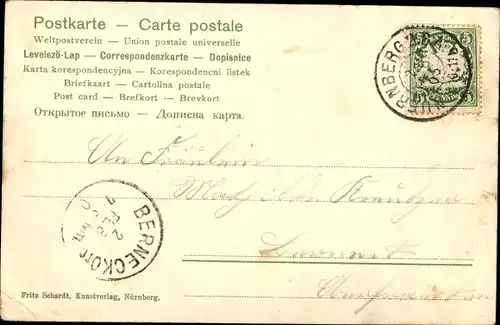 Postkarte — Carte postale
Weltpostverein — Union postale universelle
Levelező-Lap — Correspondenzkarte — Dopisnice
Karta korespondencyjna — Korespondencni listek
Briefkaart — Cartolina postale
Post card — Brefkort — Brevkort
Открытое письмо — Дописна карта.
5 5
NUERNBERG
An Fräulein
Mathilde
BERNECK
2
Fritz Schardt, Kunstverlag, Nürnberg.